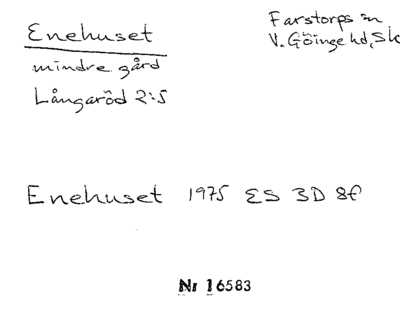 Enehuset
Farstorps sn
V. Göinge hd, Sk
mindre gård
Långaröd 2:5
Enehuset 1975 ES 3D 8f
Nr 16583